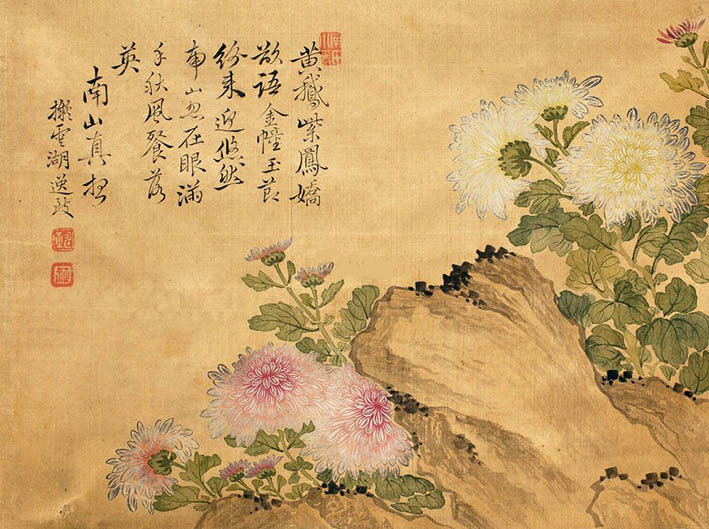 黄鵝紫鳳嬌
欲語金幢玉節
紛来迎悠然
南山忽在眼滿
手秋風餐落
英
南山真
擬雲湖逸